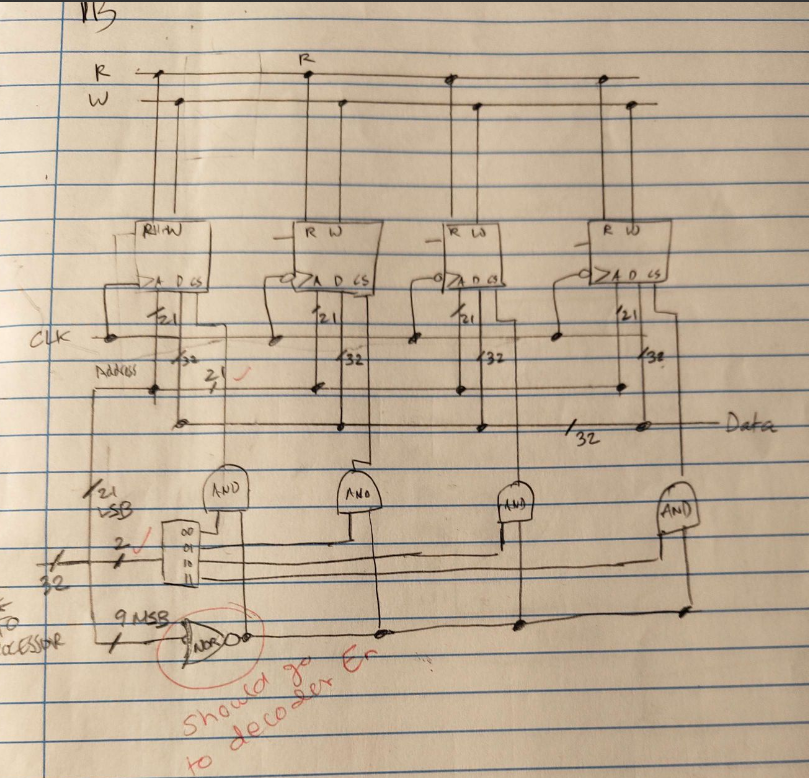 R
R
W
R W
R W
R W
R W
A D CS
A D CS
A D CS
A D CS
21
21
21
21
CLK
32
32
32
32
Address
21
Data
32
AND
AND
AND
AND
21
LSB
00
01
10
11
2
32
9 MSB
TO
NOR
should go
to decoder En